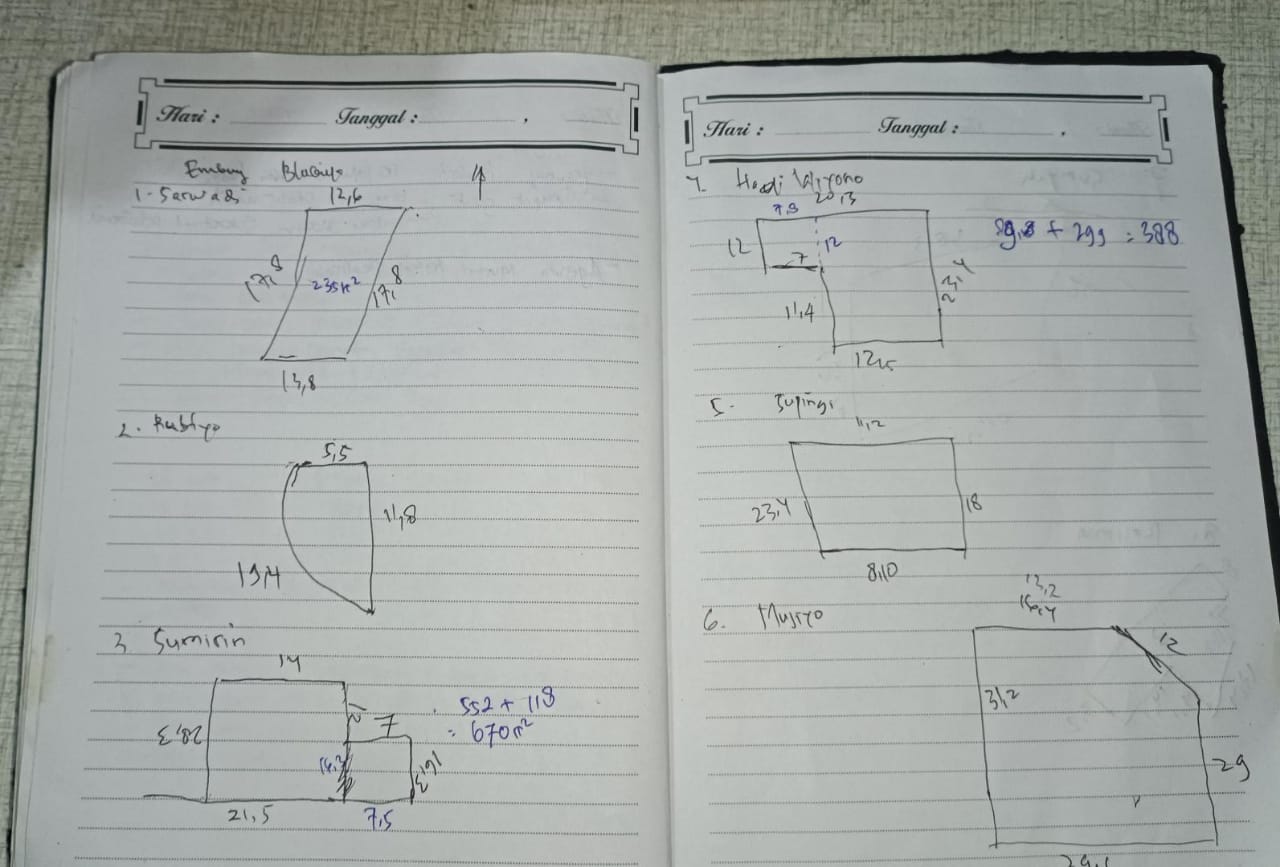 Hari : Tanggal : ,
Embung
1. Sarwadi
12,6
17,8
235 m²
17,8
13,8
2. Rubiyo
5,5
11,8
19,4
3 Sumirin
14
28,3
12
7
16,3
21,5
7,5
552 + 118
= 670 m²
Hari : Tanggal : ,
Hadi Wiyono
20,3
7,9
12
12
7
23,4
11,4
12,5
+ 299 = 388
5. Supingi
11,2
23,4
18
8,10
6. Mujiyo
13,2
12
31,2
29